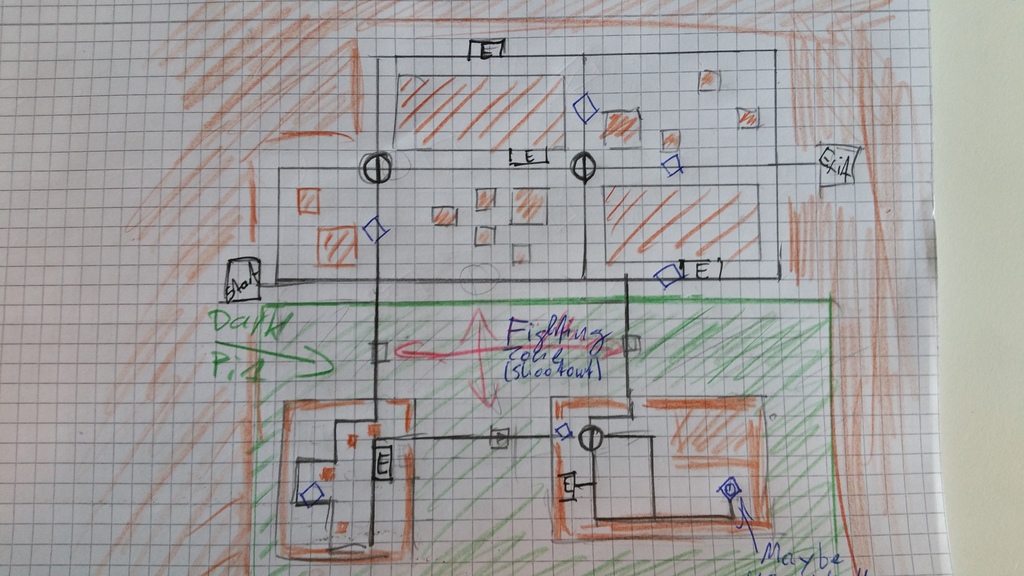 E
E
Exit
Start
E
Fighting
zone
(shootout)
E
E
Maybe